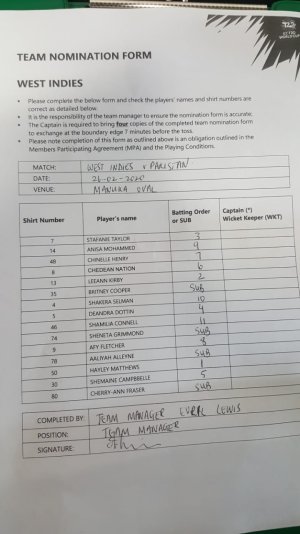 TEAM NOMINATION FORM
WEST INDIES
• Please complete the below form and check the players' names and shirt numbers are
correct as detailed below.
• It is the responsibility of the team manager to ensure the nomination form is accurate;
• The Captain is required to bring four copies of the completed team nomination form
to exchange at the boundary edge 7 minutes before the toss.
• Please note completion of this form as outlined above is an obligation outlined in the
Members Participating Agreement (MPA) and the Playing Conditions.
MATCH: WEST INDIES v PAKISTAN
DATE: 26-02-2020
VENUE: MANUKA OVAL
Shirt Number Player's name Batting Order or SUB Captain (*) Wicket Keeper (WKT)
7 STAFANIE TAYLOR 3
14 ANISA MOHAMMED 9
48 CHINELLE HENRY 7
8 CHEDEAN NATION 6
13 LEEANN KIRBY 2
35 BRITNEY COOPER SUB
4 SHAKERA SELMAN 10
5 DEANDRA DOTTIN 4
46 SHAMILIA CONNELL 11
74 SHENETA GRIMMOND SUB
9 AFY FLETCHER 8
78 AALIYAH ALLEYNE SUB
50 HAYLEY MATTHEWS 1
30 SHEMAINE CAMPBBELLE 5
80 CHERRY-ANN FRASER SUB
COMPLETED BY: TEAM MANAGER EVRIL LEWIS
POSITION: TEAM MANAGER
SIGNATURE